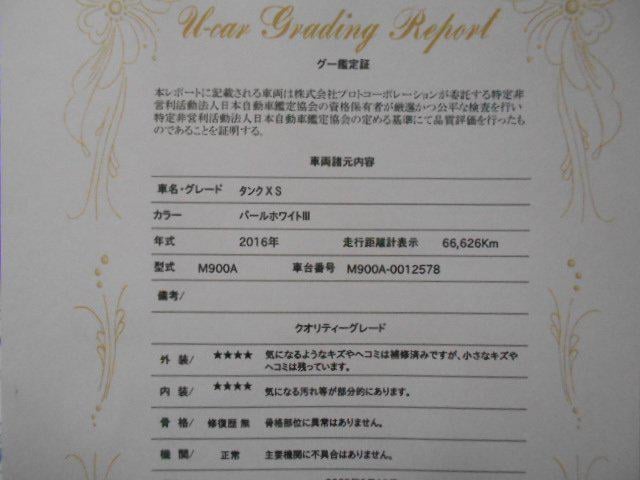 U-car Grading Report
グー鑑定証
本レポートに記載される車両は株式会社プロトコーポレーションが委託する特定非
営利活動法人日本自動車鑑定協会の資格保有者が厳選かつ公平な検査を行い
特定非営利活動法人日本自動車鑑定協会の定める基準にて品質評価を行ったも
のであることを証明する。
車両諸元内容
車名・グレード タンクXS
カラー パールホワイトⅢ
年式 2016年 走行距離計表示 66,626Km
型式 M900A 車台番号 M900A-0012578
備考/
クオリティーグレード
外 装/ ★★★★ 気になるようなキズやヘコミは補修済みですが、小さなキズや
ヘコミは残っています。
内 装/ ★★★★ 気になる汚れ等が部分的にあります。
骨 格/ 修復歴 無 骨格部位に異常はありません。
機 関/ 正常 主要機関に不具合はありません。